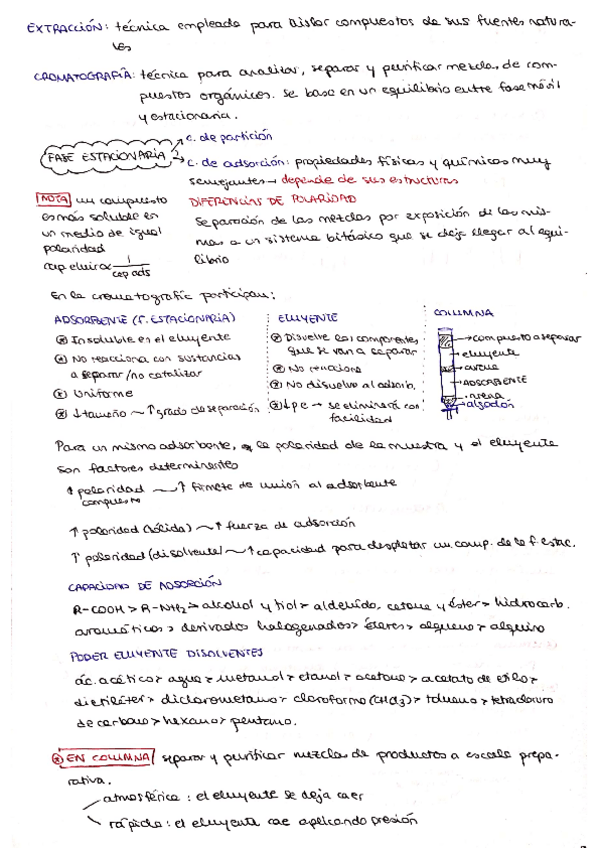 EXTRACCIÓN: técnica empleada para aislar compuestos de sus fuentes natura-
les
CROMATOGRAFÍA: técnica para analizar, separar y purificar mezclas de com-
puestos orgánicos. Se basa en un equilibrio entre fase móvil
y estacionaria.
FASE ESTACIONARIA
c. de partición
c. de adsorción: propiedades físicas y químicas muy
semejantes → depende de sus estructuras
NOTA un compuesto
es más soluble en
un medio de igual
polaridad
cap eluir α 1/cap ads
DIFERENCIAS DE POLARIDAD
Separación de las mezclas por exposición de las mis-
mas a un sistema bifásico que se deja llegar al equi-
librio
En la cromatografía participan:
ADSORBENTE (F. ESTACIONARIA)
Insoluble en el eluyente
No reacciona con sustancias
a separar/no catalizar
Uniforme
↓tamaño ~ ↑grado de separación
ELUYENTE
Disuelve los componentes
que se van a separar
No reacciona
No disuelve al adsorb.
↓pe → se eliminará con
facilidad
COLUMNA
compuesto a separar
eluyente
arena
ADSORBENTE
arena
algodón
Para un mismo adsorbente, la polaridad de la muestra y el eluyente
son factores determinantes
↑ polaridad ~ ↑ firmeza de unión al adsorbente
compuesto
↑ polaridad (sólido) ~ ↑ fuerza de adsorción
↑ polaridad (disolvente) ~ ↑ capacidad para desplazar un comp. de la f. estac.
CAPACIDAD DE ADSORCIÓN
R-COOH > R-NH2 > alcohol y tiol > aldehído, cetona y éster > hidrocarb.
aromáticos > derivados halogenados > éteres > alqueno > alquino
PODER ELUYENTE DISOLVENTES
ác. acético > agua > metanol > etanol > acetona > acetato de etilo >
dietiléter > diclorometano > cloroformo (CHCl3) > tolueno > tetracloruro
de carbono > hexano > pentano.
EN COLUMNA separar y purificar mezclas de productos a escala prepa-
rativa.
atmosférica: el eluyente se deja caer
rápida: el eluyente cae aplicando presión